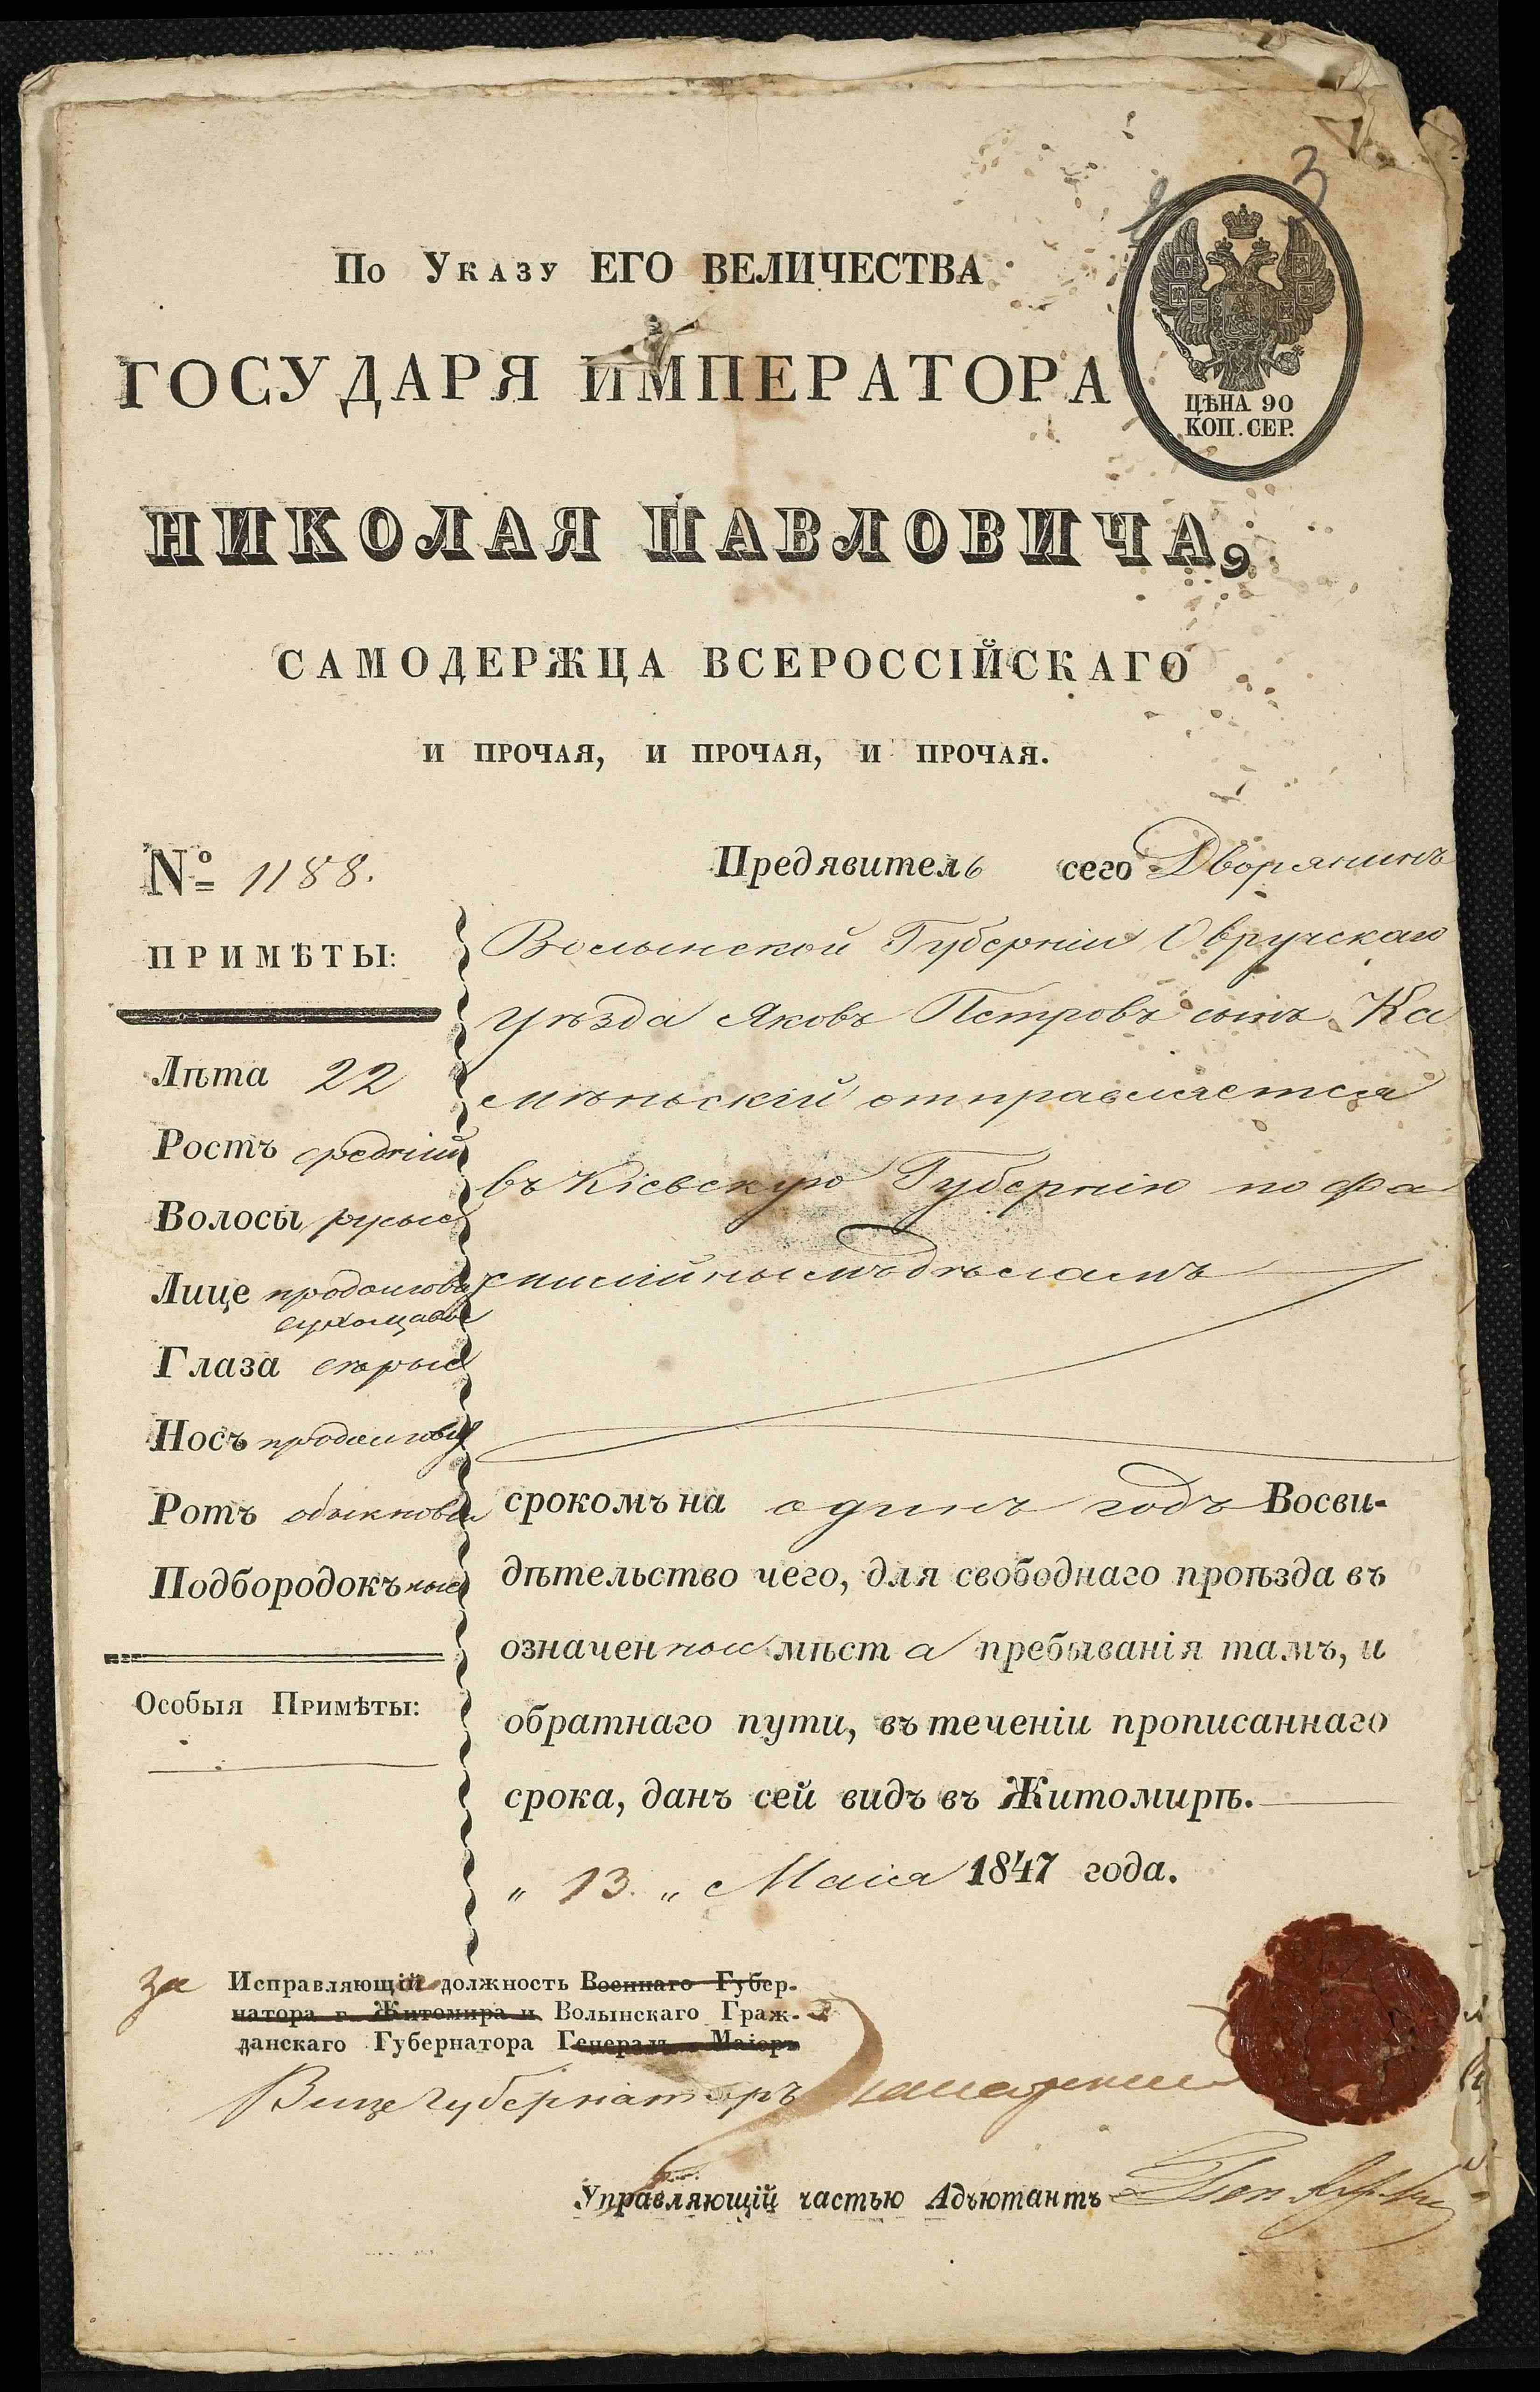 3
По Указу ЕГО ВЕЛИЧЕСТВА
ГОСУДАРЯ ИМПЕРАТОРА
ЦѢНА 90
КОП. СЕР.
НИКОЛАЯ ПАВЛОВИЧА,
САМОДЕРЖЦА ВСЕРОССІЙСКАГО
И ПРОЧАЯ, И ПРОЧАЯ, И ПРОЧАЯ.
№ 1188.
ПРИМѢТЫ:
Лѣта 22
Ростъ средній
Волосы русые
Лице продолгова
сухощавое
Глаза сѣрые
Носъ продолгов
Ротъ обыкновен
Подбородокъ ные
Особыя Примѣты:
Предявитель сего Дворянинъ
Волынской Губерніи Овручскаго
уѣзда Яковъ Петровъ сынъ Ка
мѣньскій отправляется
въ Кіевскую Губернію по фа
милійнымъ дѣламъ
срокомъ на одинъ годъ Восви-
дѣтельство чего, для свободнаго проѣзда въ
означенные мѣста пребыванія тамъ, и
обратнаго пути, въ теченіи прописаннаго
срока, данъ сей видъ въ Житомирѣ.
„ 13. „ Маія 1847 года.
за Исправляющій должность Военнаго Губер-
натора г. Житомира и Волынскаго Граж-
данскаго Губернатора Генералъ-Маіоръ
Вице Губернаторъ
Управляющій частью Адъютантъ